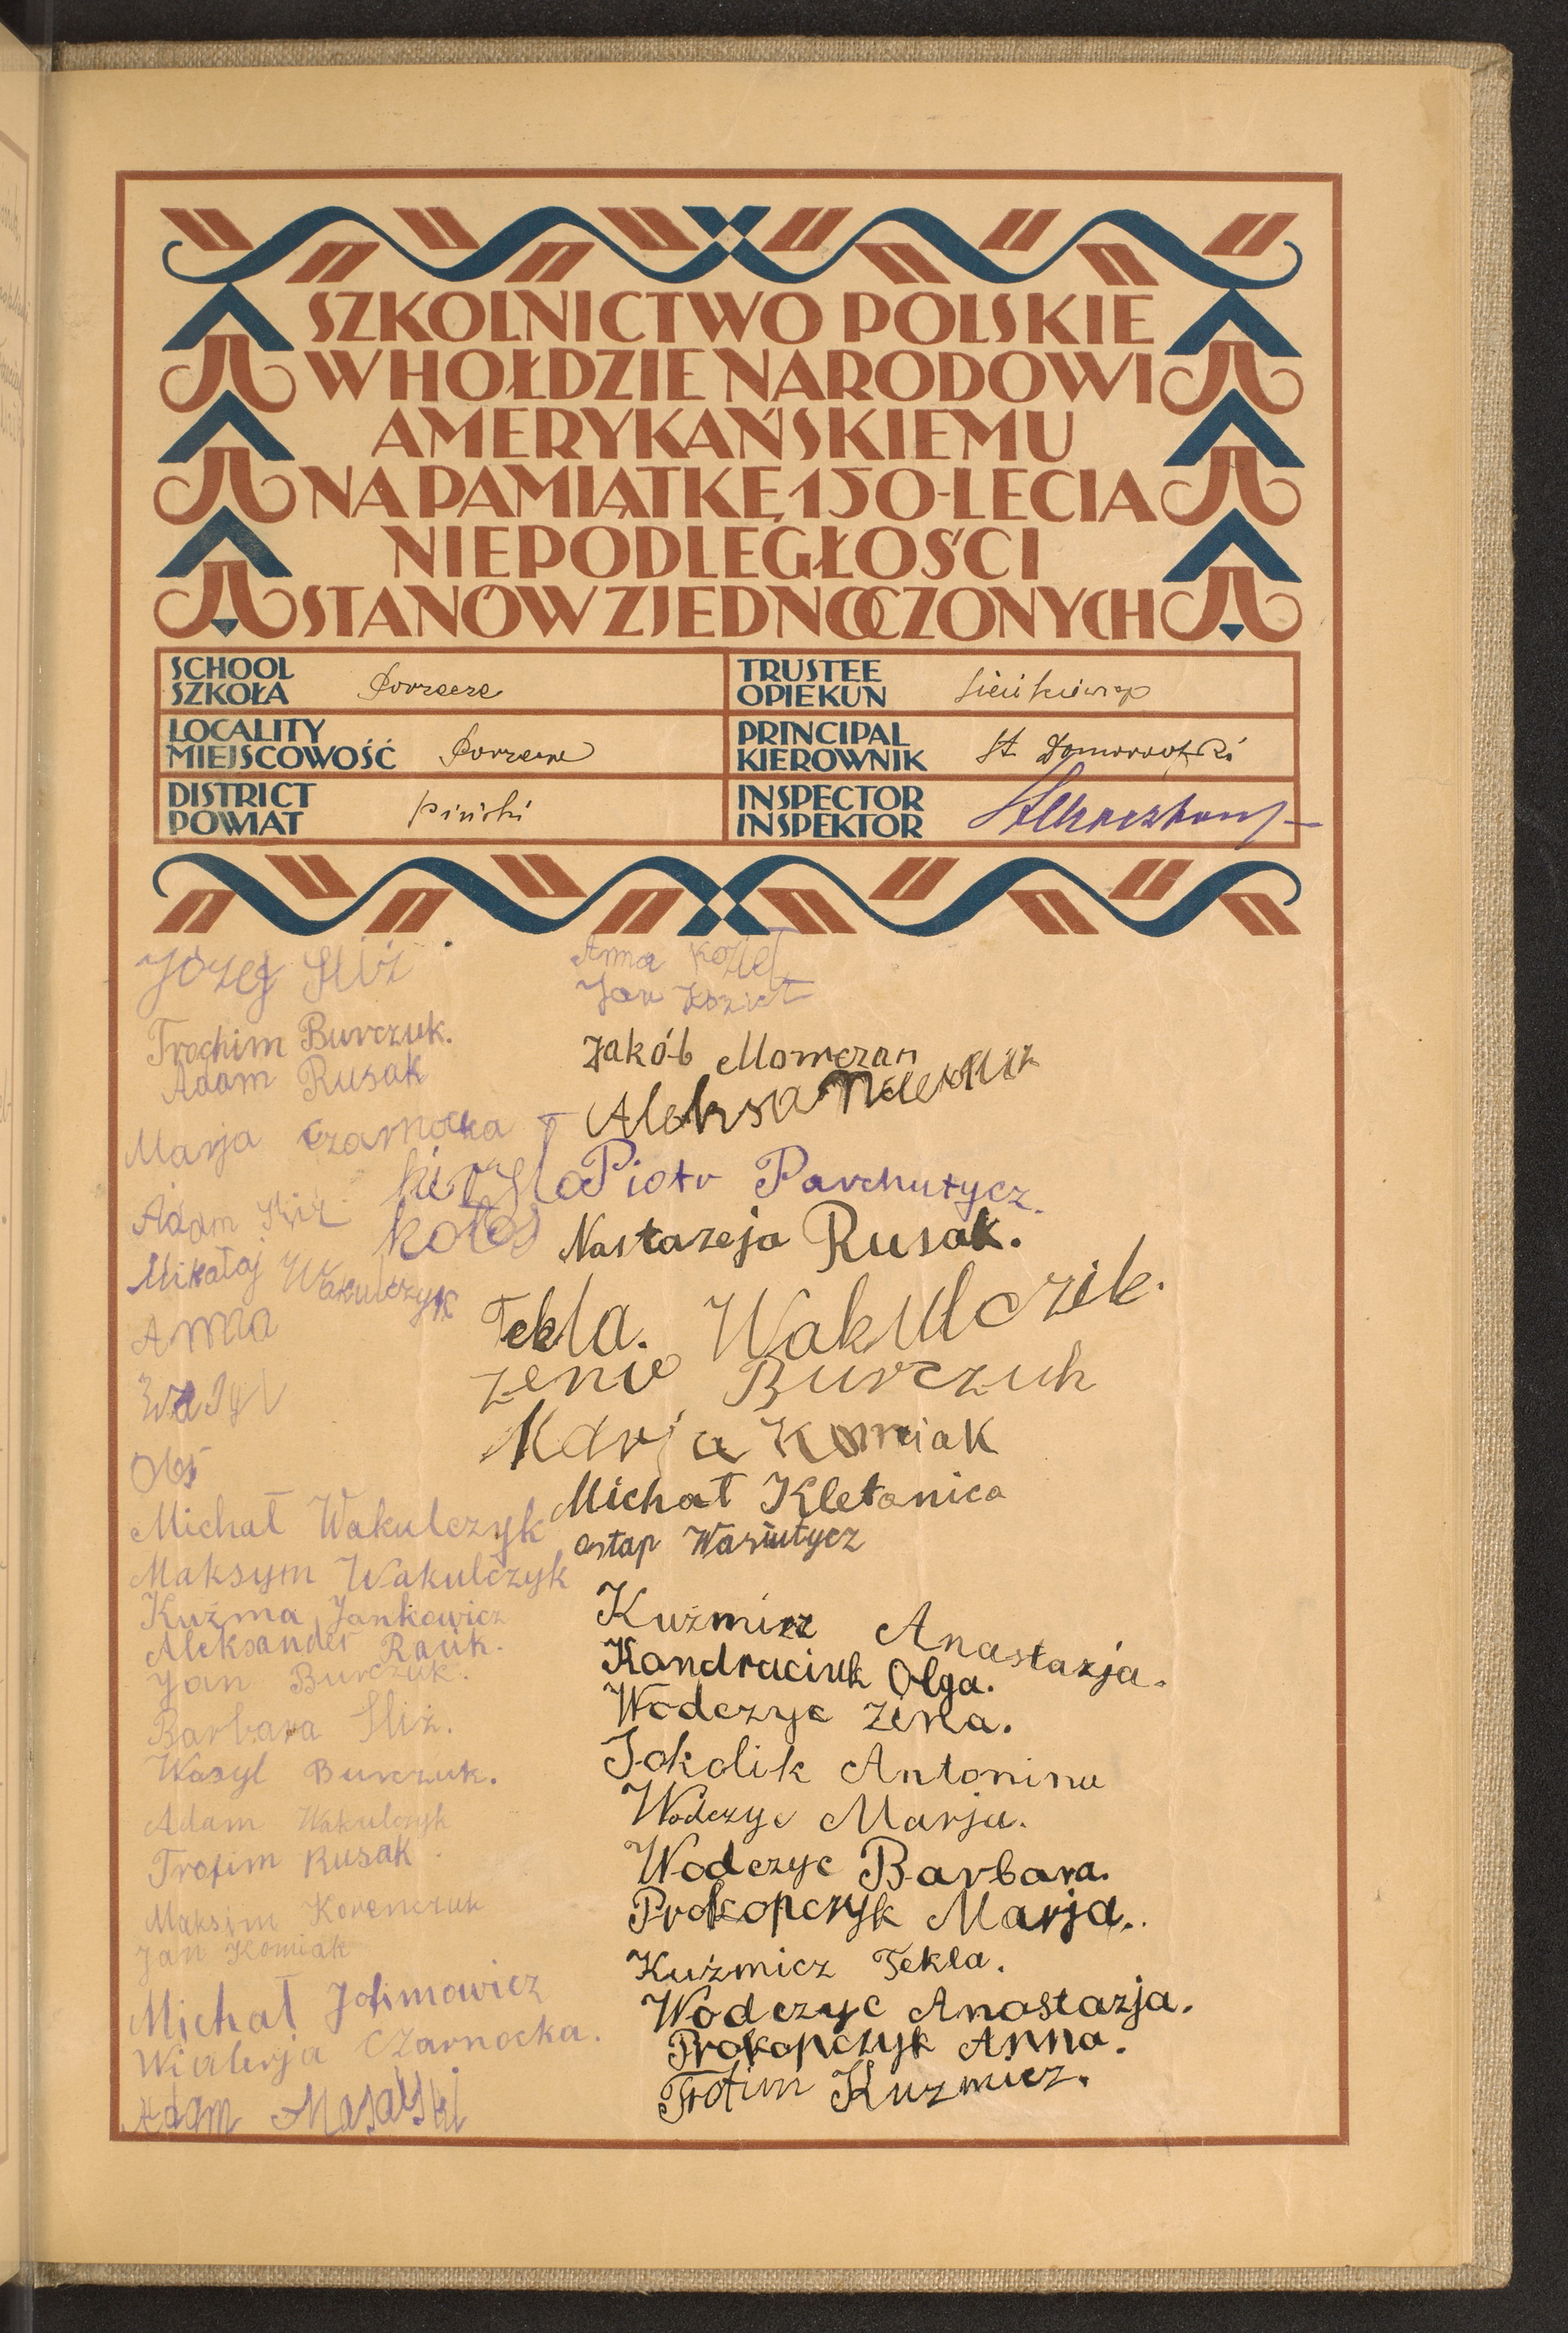 SZKOLNICTWO POLSKIE
W HOŁDZIE NARODOWI
AMERYKAŃSKIEMU
NA PAMIĄTKĘ 150-LECIA
NIEPODLEGŁOŚCI
STANÓW ZJEDNOCZONYCH
SCHOOL
SZKOŁA
LOCALITY
MIEJSCOWOŚĆ
DISTRICT
POWIAT Piński
TRUSTEE
OPIEKUN
PRINCIPAL
KIEROWNIK St.
INSPECTOR
INSPEKTOR
Józef Śliż
Trochim Burczuk.
Adam Rusak
Marja Czarnocka
Adam Śliż
Mikołaj Wakulczyk
Anna
Michał Wakulczyk
Maksym Wakulczyk
Kuźma Jankowicz
Aleksander
Jan Burczuk.
Barbara Śliż.
Wasyl Burczuk.
Adam Wakulczyk
Trofim Rusak
Maksim Korenczuk
Jan Komiak
Michał Jofimowicz
Czarnocka.
Adam
Anna
Jan
Jakób
Piotr Parchutycz.
Kołos
Nastazeja Rusak.
Tekla. Wakulczik.
Burczuk
Marja Komiak
Michał Kletanica
Ostap Wasiutycz
Kuźmicz Anastazja.
Kandraciuk Olga.
Wodczyc Zenia.
Sokolik Antonina
Wodczyc Marja.
Wodczyc Barbara.
Prokopczyk Marja.
Kuźmicz Tekla.
Wodczyc Anastazja.
Prokopczyk Anna.
Trofim Kuzmicz.